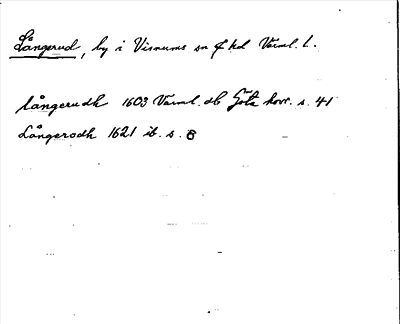 Långerud, by i Visnums sn o hd Värml. l.
Långerudh 1603 Värml. db Göta hovr. s. 41
Långerodh 1621 ib. s. 8